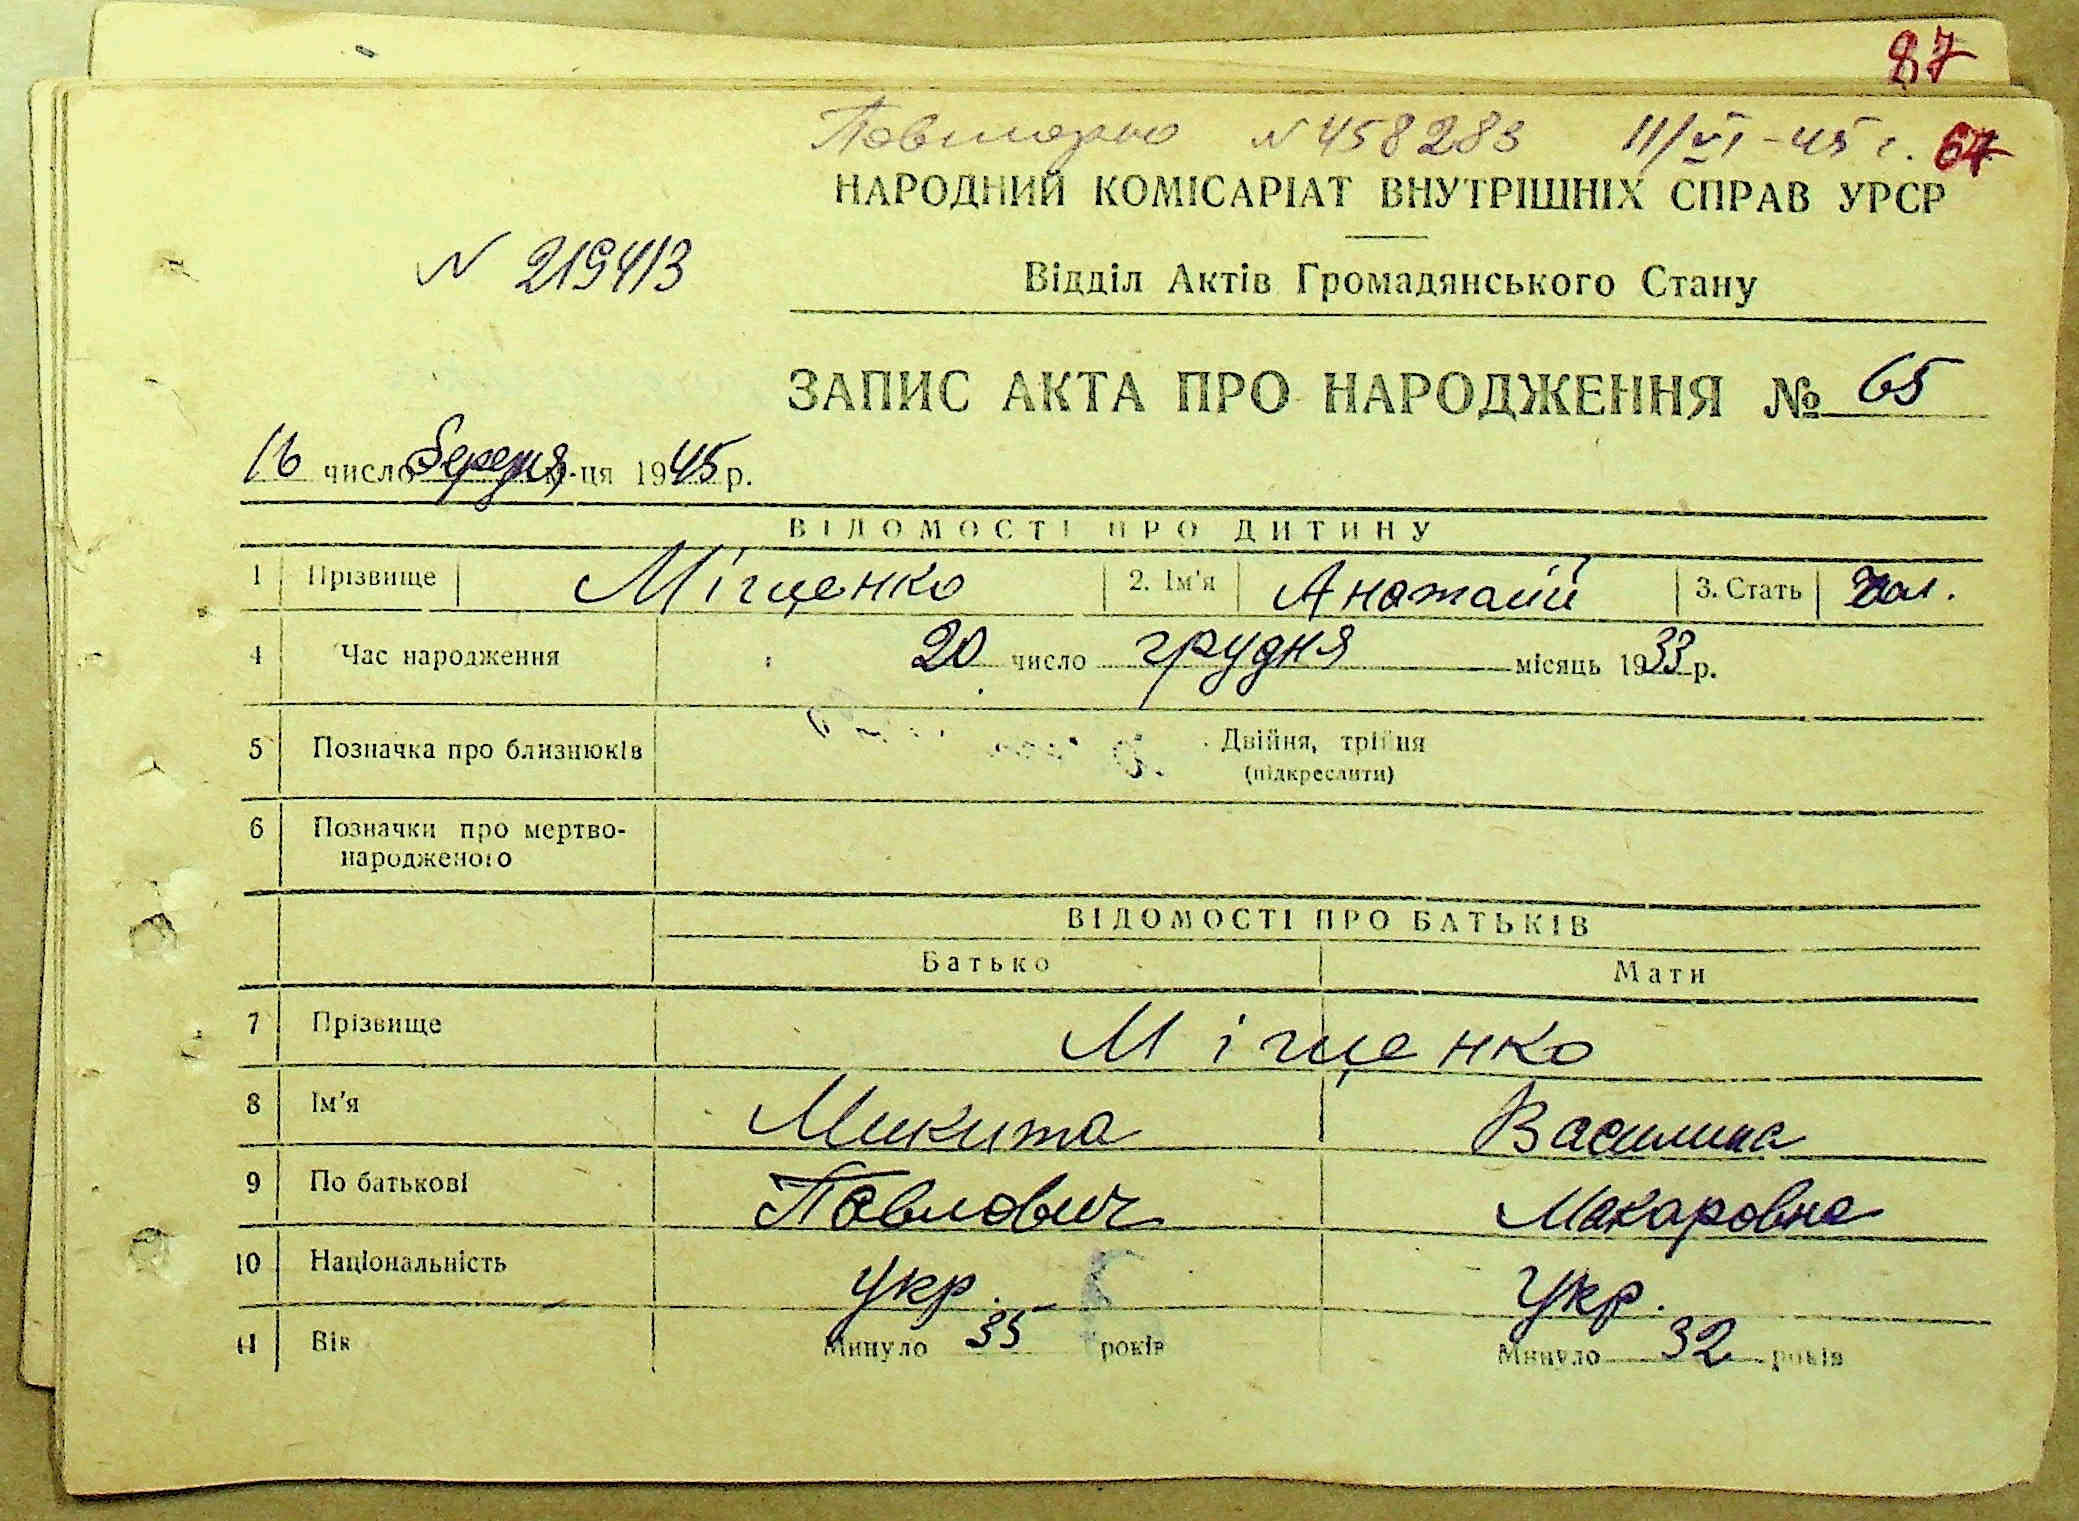 87
Повторно N 458283 11/VI-45 г. 67
НАРОДНИЙ КОМІСАРІАТ ВНУТРІШНІХ СПРАВ УРСР
N 219413
Відділ Актів Громадянського Стану
ЗАПИС АКТА ПРО НАРОДЖЕННЯ № 65
16 число березня м-ця 1945 р.
ВІДОМОСТІ ПРО ДИТИНУ
1 Прізвище Міщенко 2. Ім'я Анатолій 3. Стать Чол.
4 Час народження 20 число грудня місяць 1933 р.
5 Позначка про близнюків Двійня, трійня
(підкреслити)
6 Позначки про мертво-
народженого
ВІДОМОСТІ ПРО БАТЬКІВ
Батько Мати
7 Прізвище Міщенко
8 Ім'я Микита Василина
9 По батькові Павлович Макаровна
10 Національність укр. Укр.
11 Вік Минуло 35 років Минуло 32 років